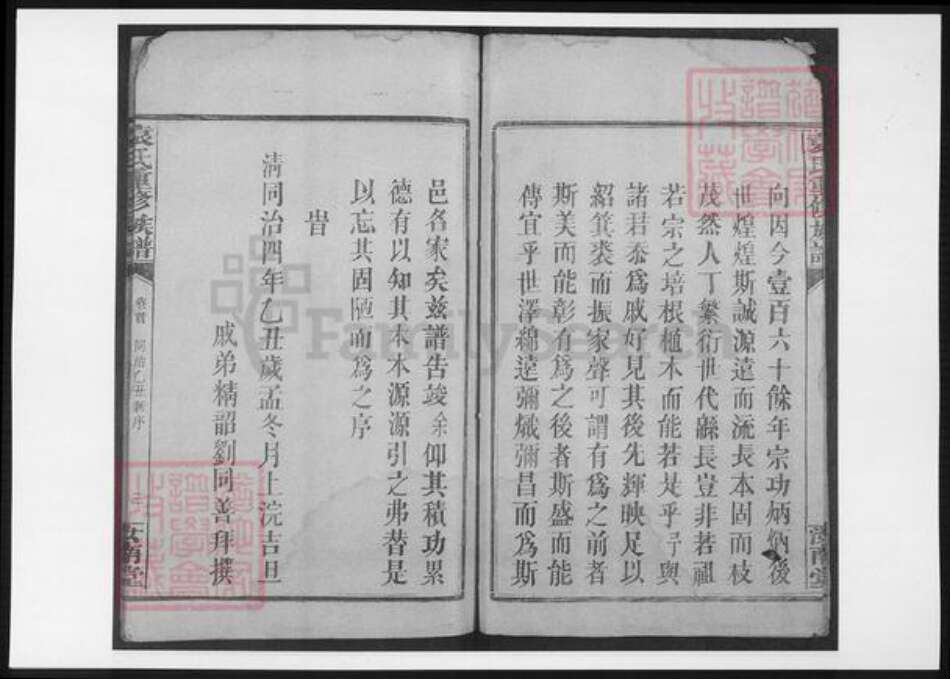 向因今壹百六十餘年宗功炳炳後
世煌煌斯誠源遠而流長本固而枝
茂然人丁繁衍世代繇長豈非若祖
若宗之培根植本而能若是乎予與
諸君忝爲戚好見其後先輝映足以
紹箕裘而振家聲可謂有爲之前者
斯美而能彰有爲之後者斯盛而能
傳宜乎世澤綿遠彌熾彌昌而爲斯
邑各家矣茲譜告竣余仰其積功累
德有以知其木本源源引之弗替是
以忘其固陋而爲之序
旹
清同治四年乙丑歲孟冬月上浣吉旦
戚弟精韶劉同善拜撰
袁氏重修族譜
卷首 同治乙丑新序
汝南堂
FamilySearch